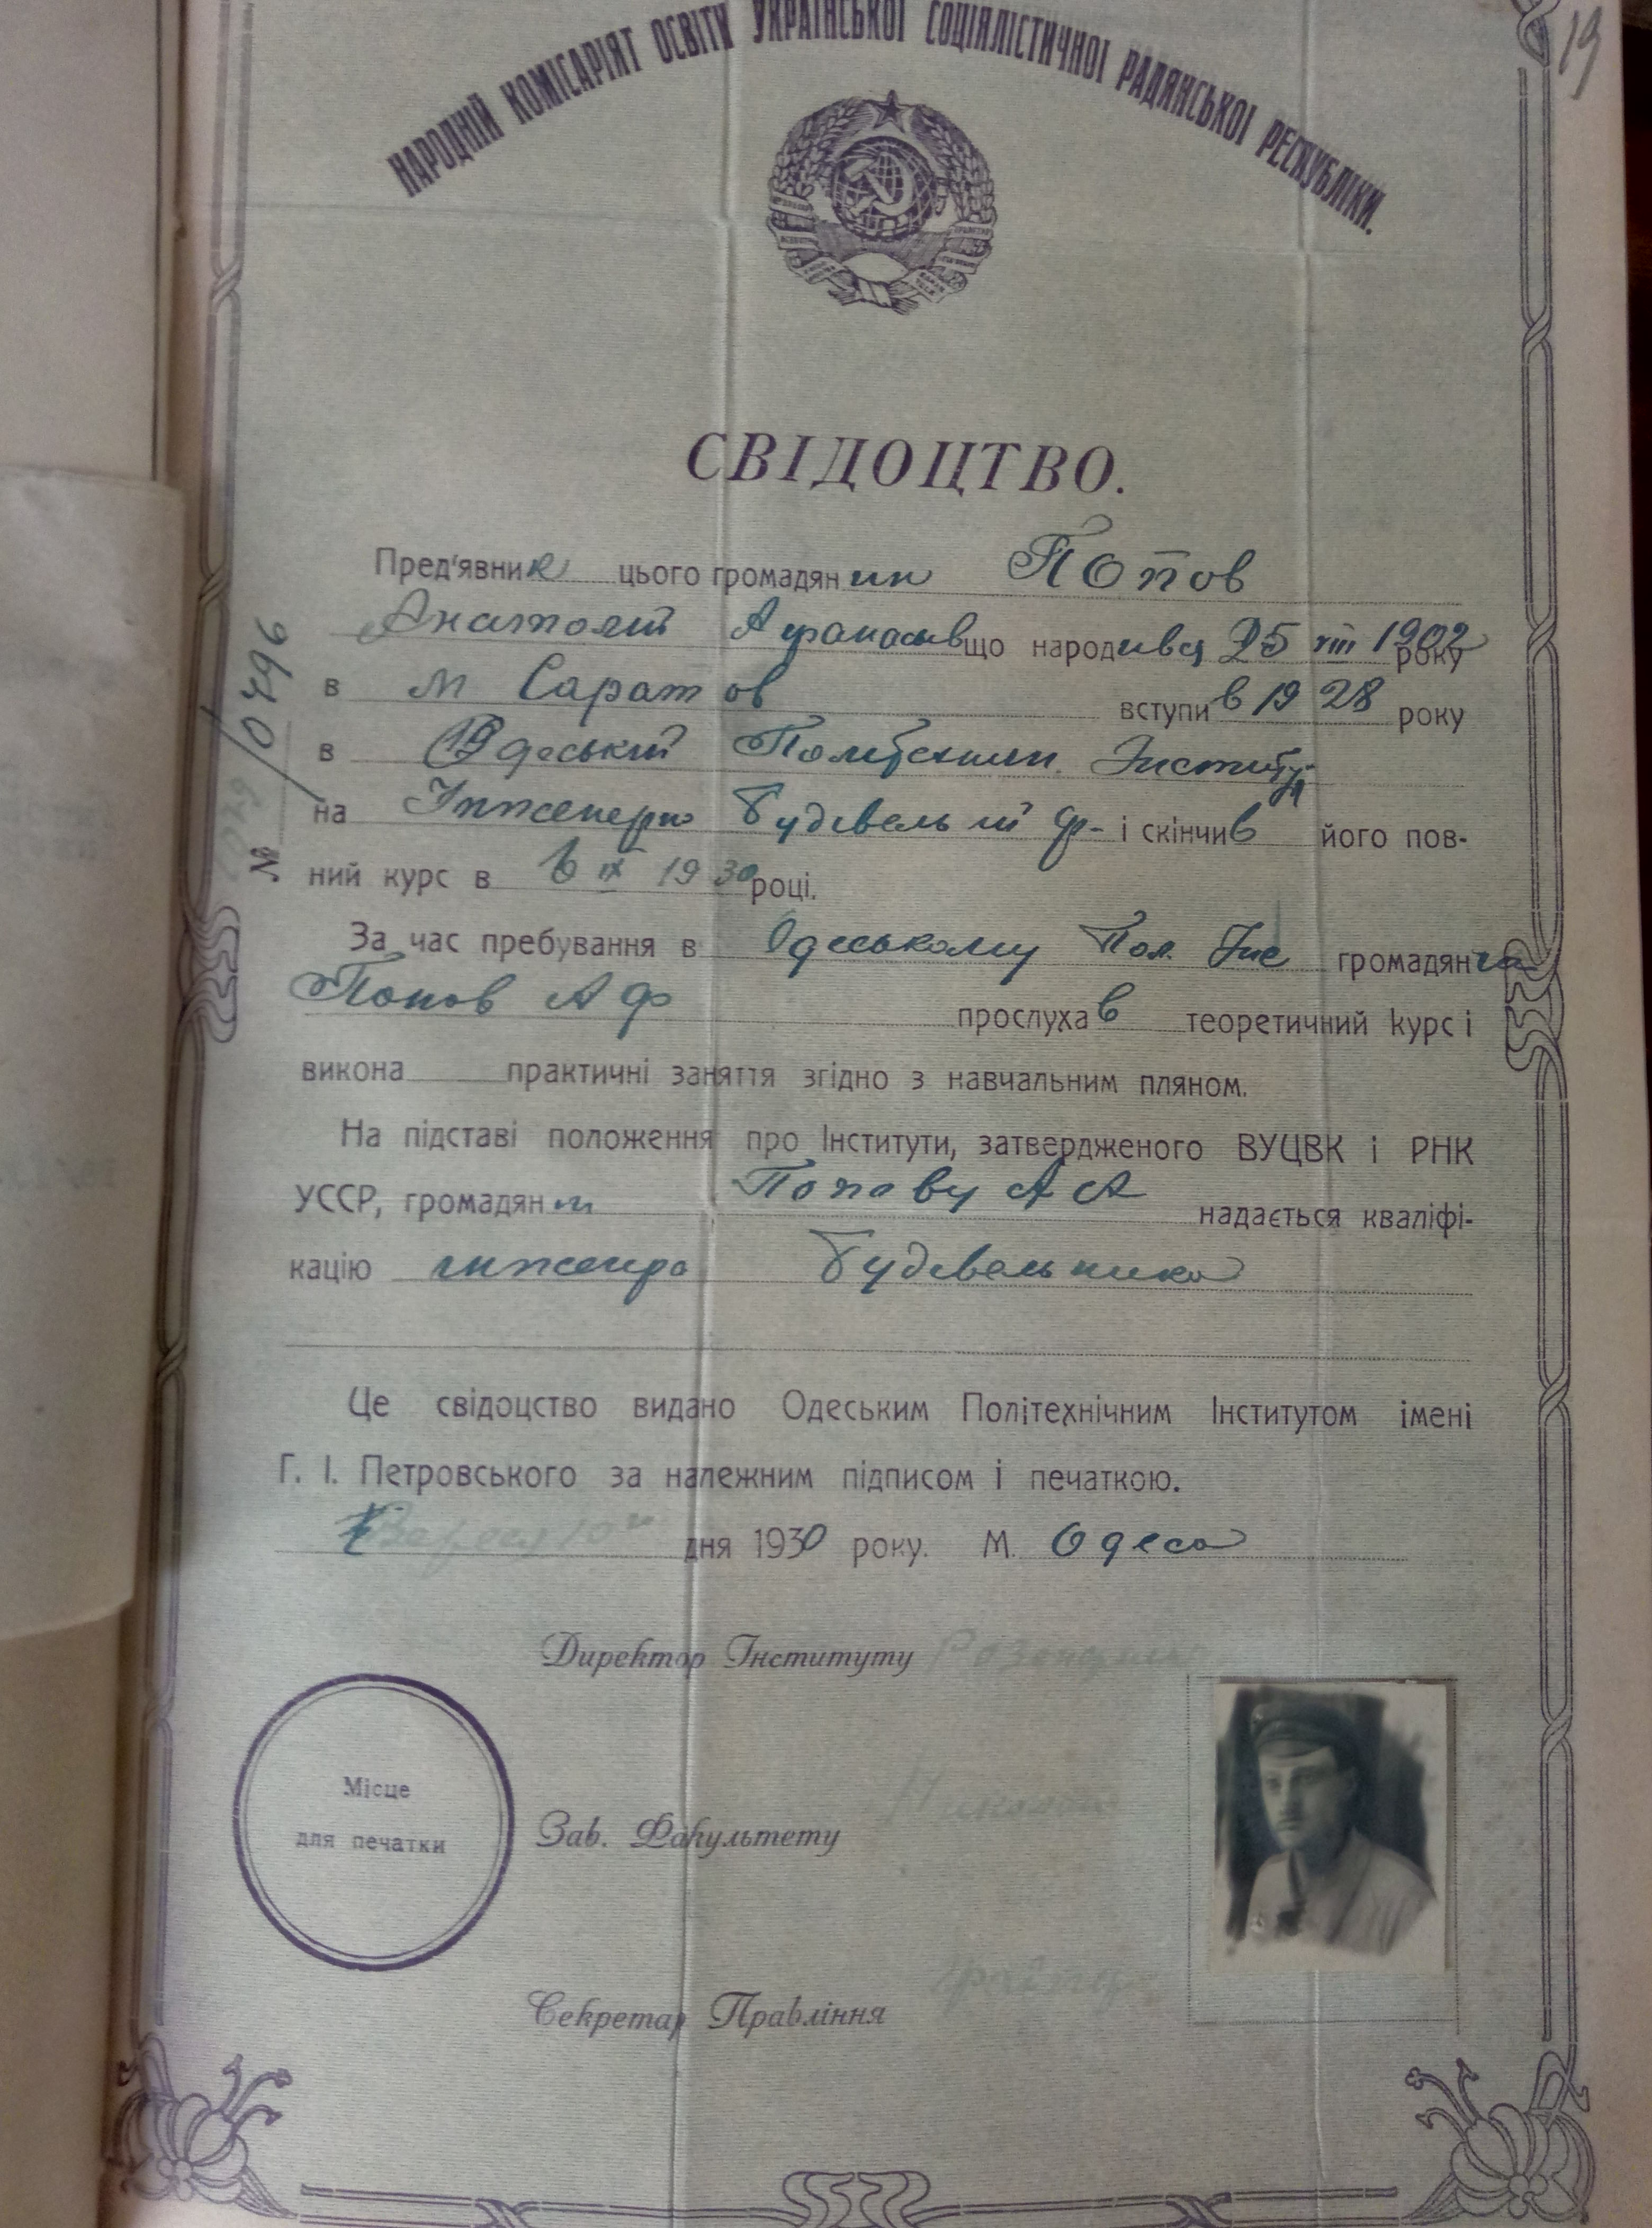 19
НАРОДНІЙ КОМІСАРІЯТ ОСВІТИ УКРАЇНСЬКОЇ СОЦІЯЛІСТИЧНОЇ РАДЯНСЬКОЇ РЕСПУБЛІКИ.
СВІДОЦТВО.
Пред'явник цього громадянин Попов
Анатолій Афанасьев що народивсь 25 VIII 1902 року
в м Саратов вступив 1928 року
в Одеський Політехнич. Інститут
на Інженерно Будівельний ф- і скінчив його пов-
ний курс в 6 IX 1930 році.
За час пребування в Одеському Пол. Инс громадян
Попов А Ф прослухав теоретичний курс і
викона практичні заняття згідно з навчальним пляном.
На підставі положення про Інститути, затвердженого ВУЦВК і РНК
УССР, громадян Попову А А надається кваліфі-
кацію инженера Будівельника
Це свідоцство видано Одеським Політехнічним Інститутом імені
Г. І. Петровського за належним підписом і печаткою.
дня 1930 року. М. Одеса
Директор Інституту
Місце
для печатки
Зав. Факультету
Секретар Правління
№ 0496